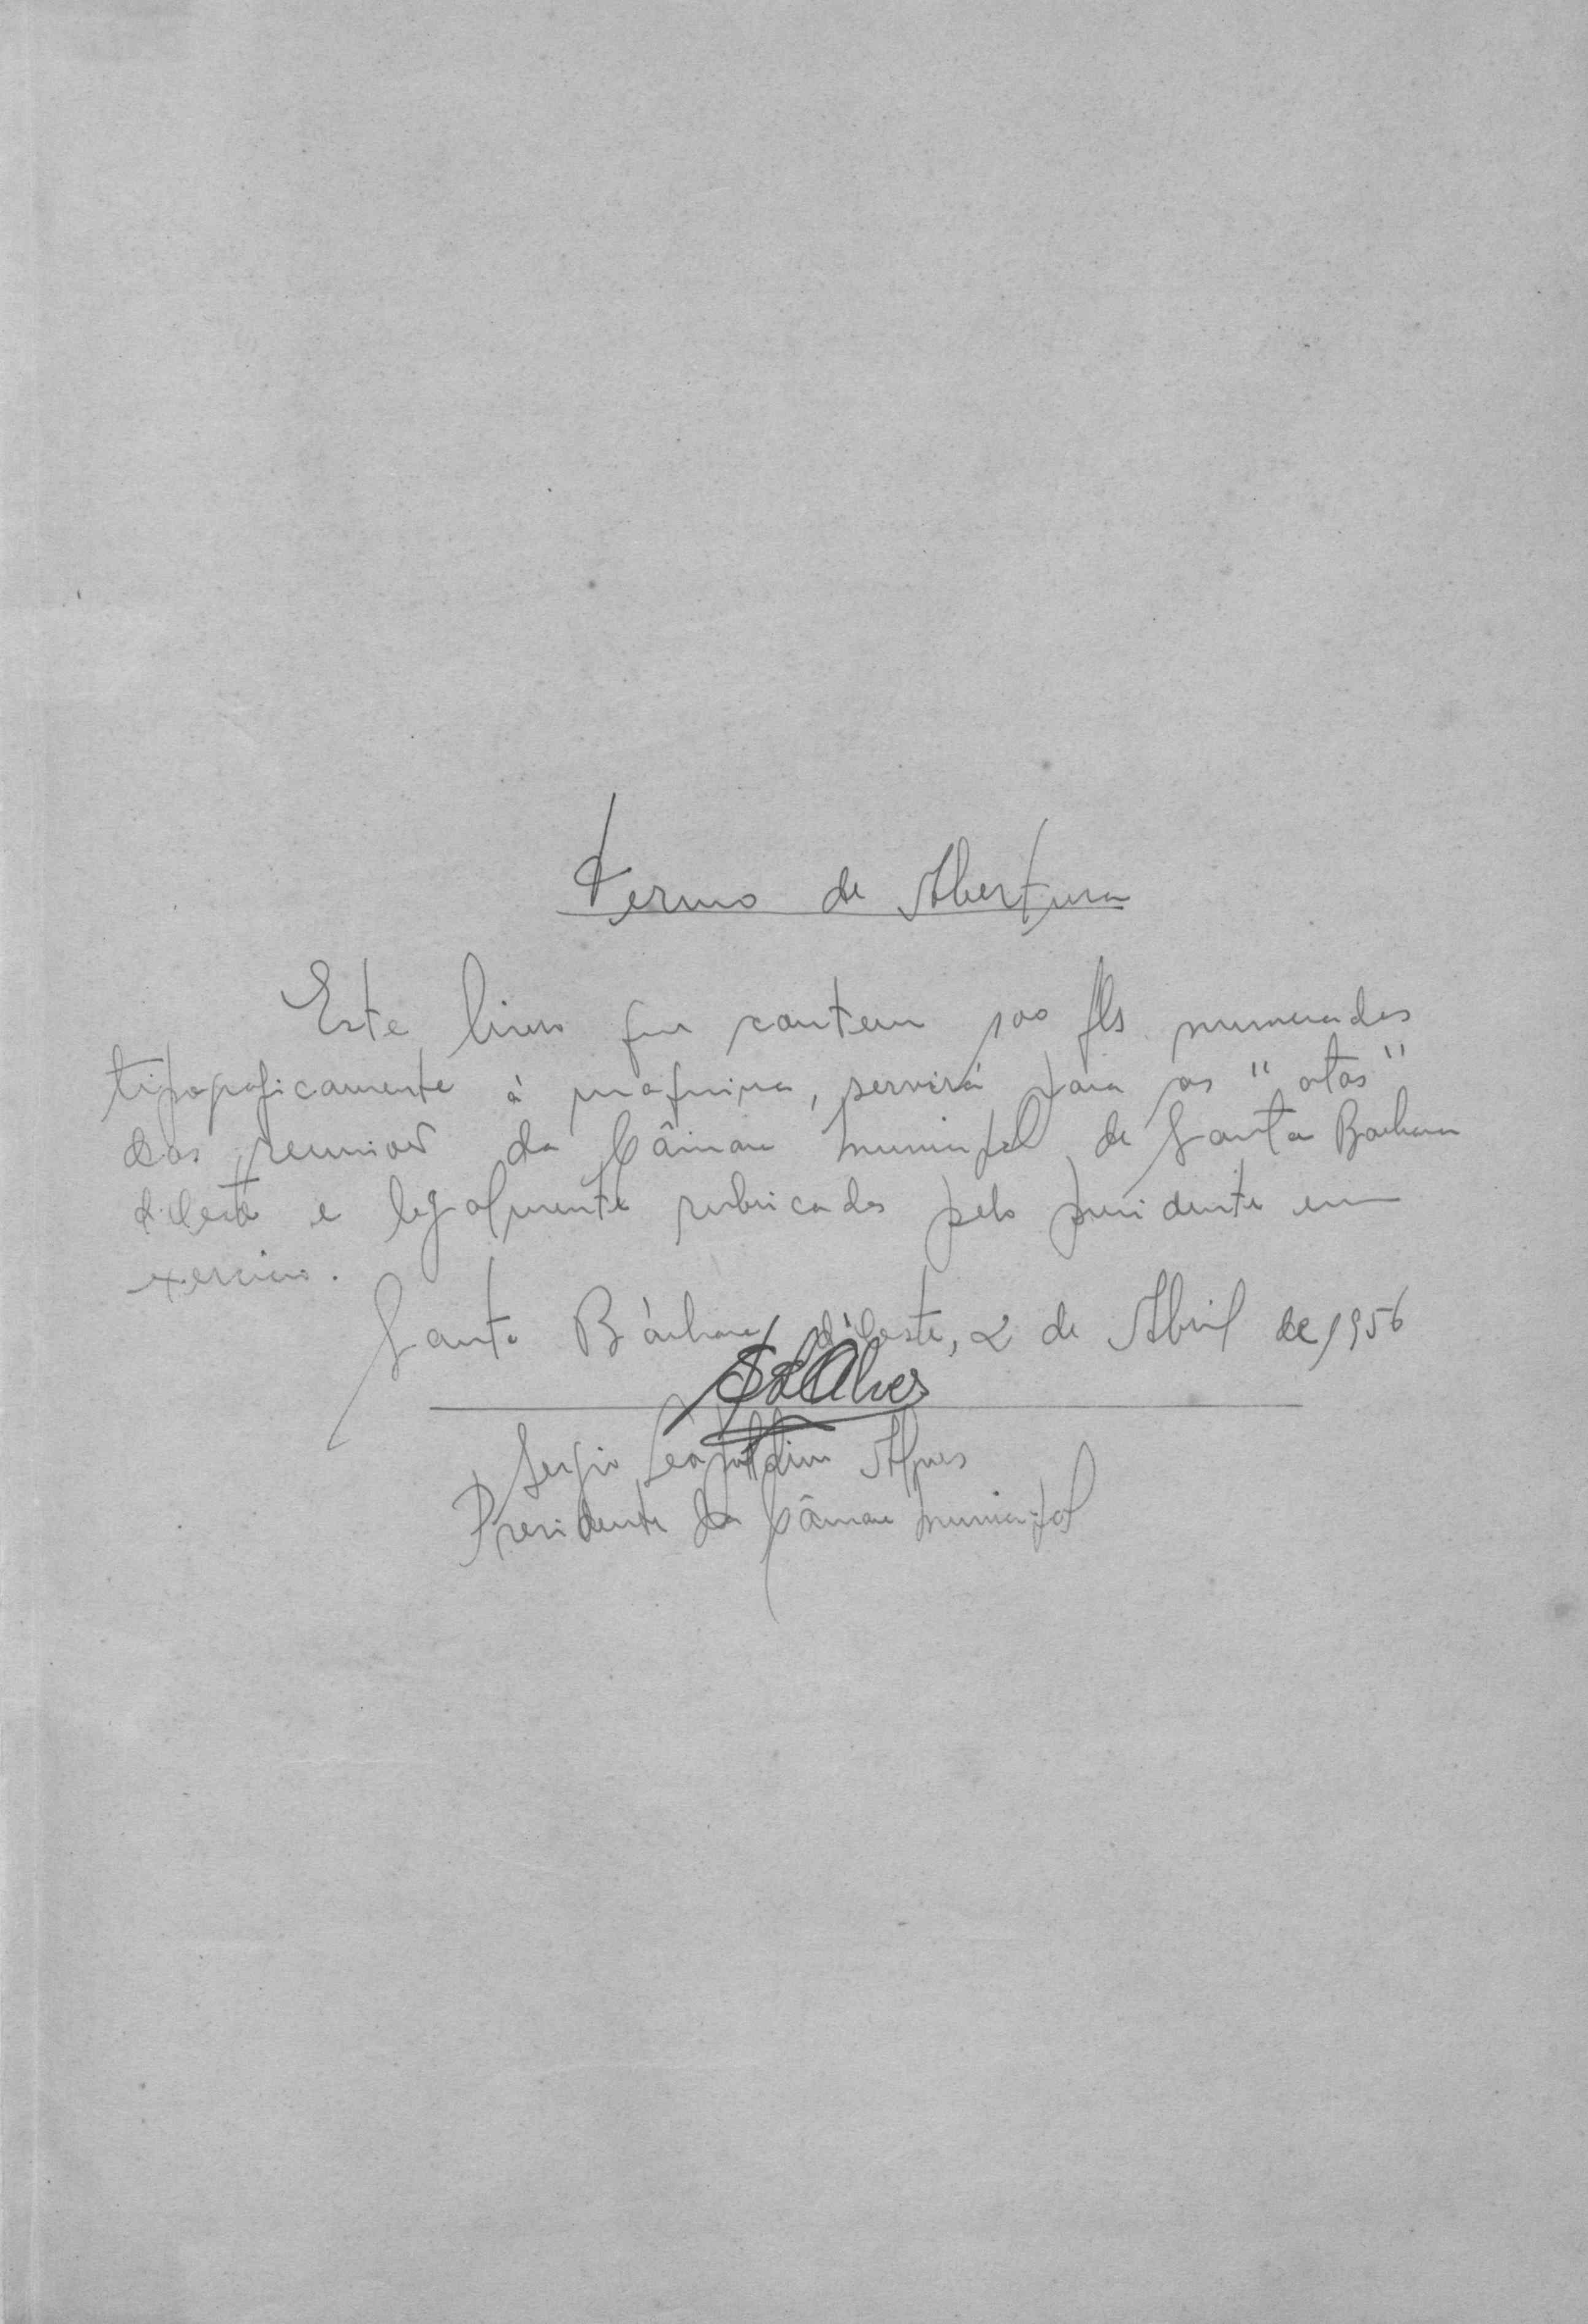 Termo de Abertura
Este livro que contem 100 fls numeradas
tipograficamente à maquina, servirá para as "atas"
das reuniões da Câmara Municipal de Santa Barbara
d'Oeste e legalmente rubricadas pelo presidente em
exercicio.
Santa Bárbara d'Oeste, 2 de Abril de 1956
SLAlves
Sergio Leopoldino Alves
Presidente da Câmara Municipal